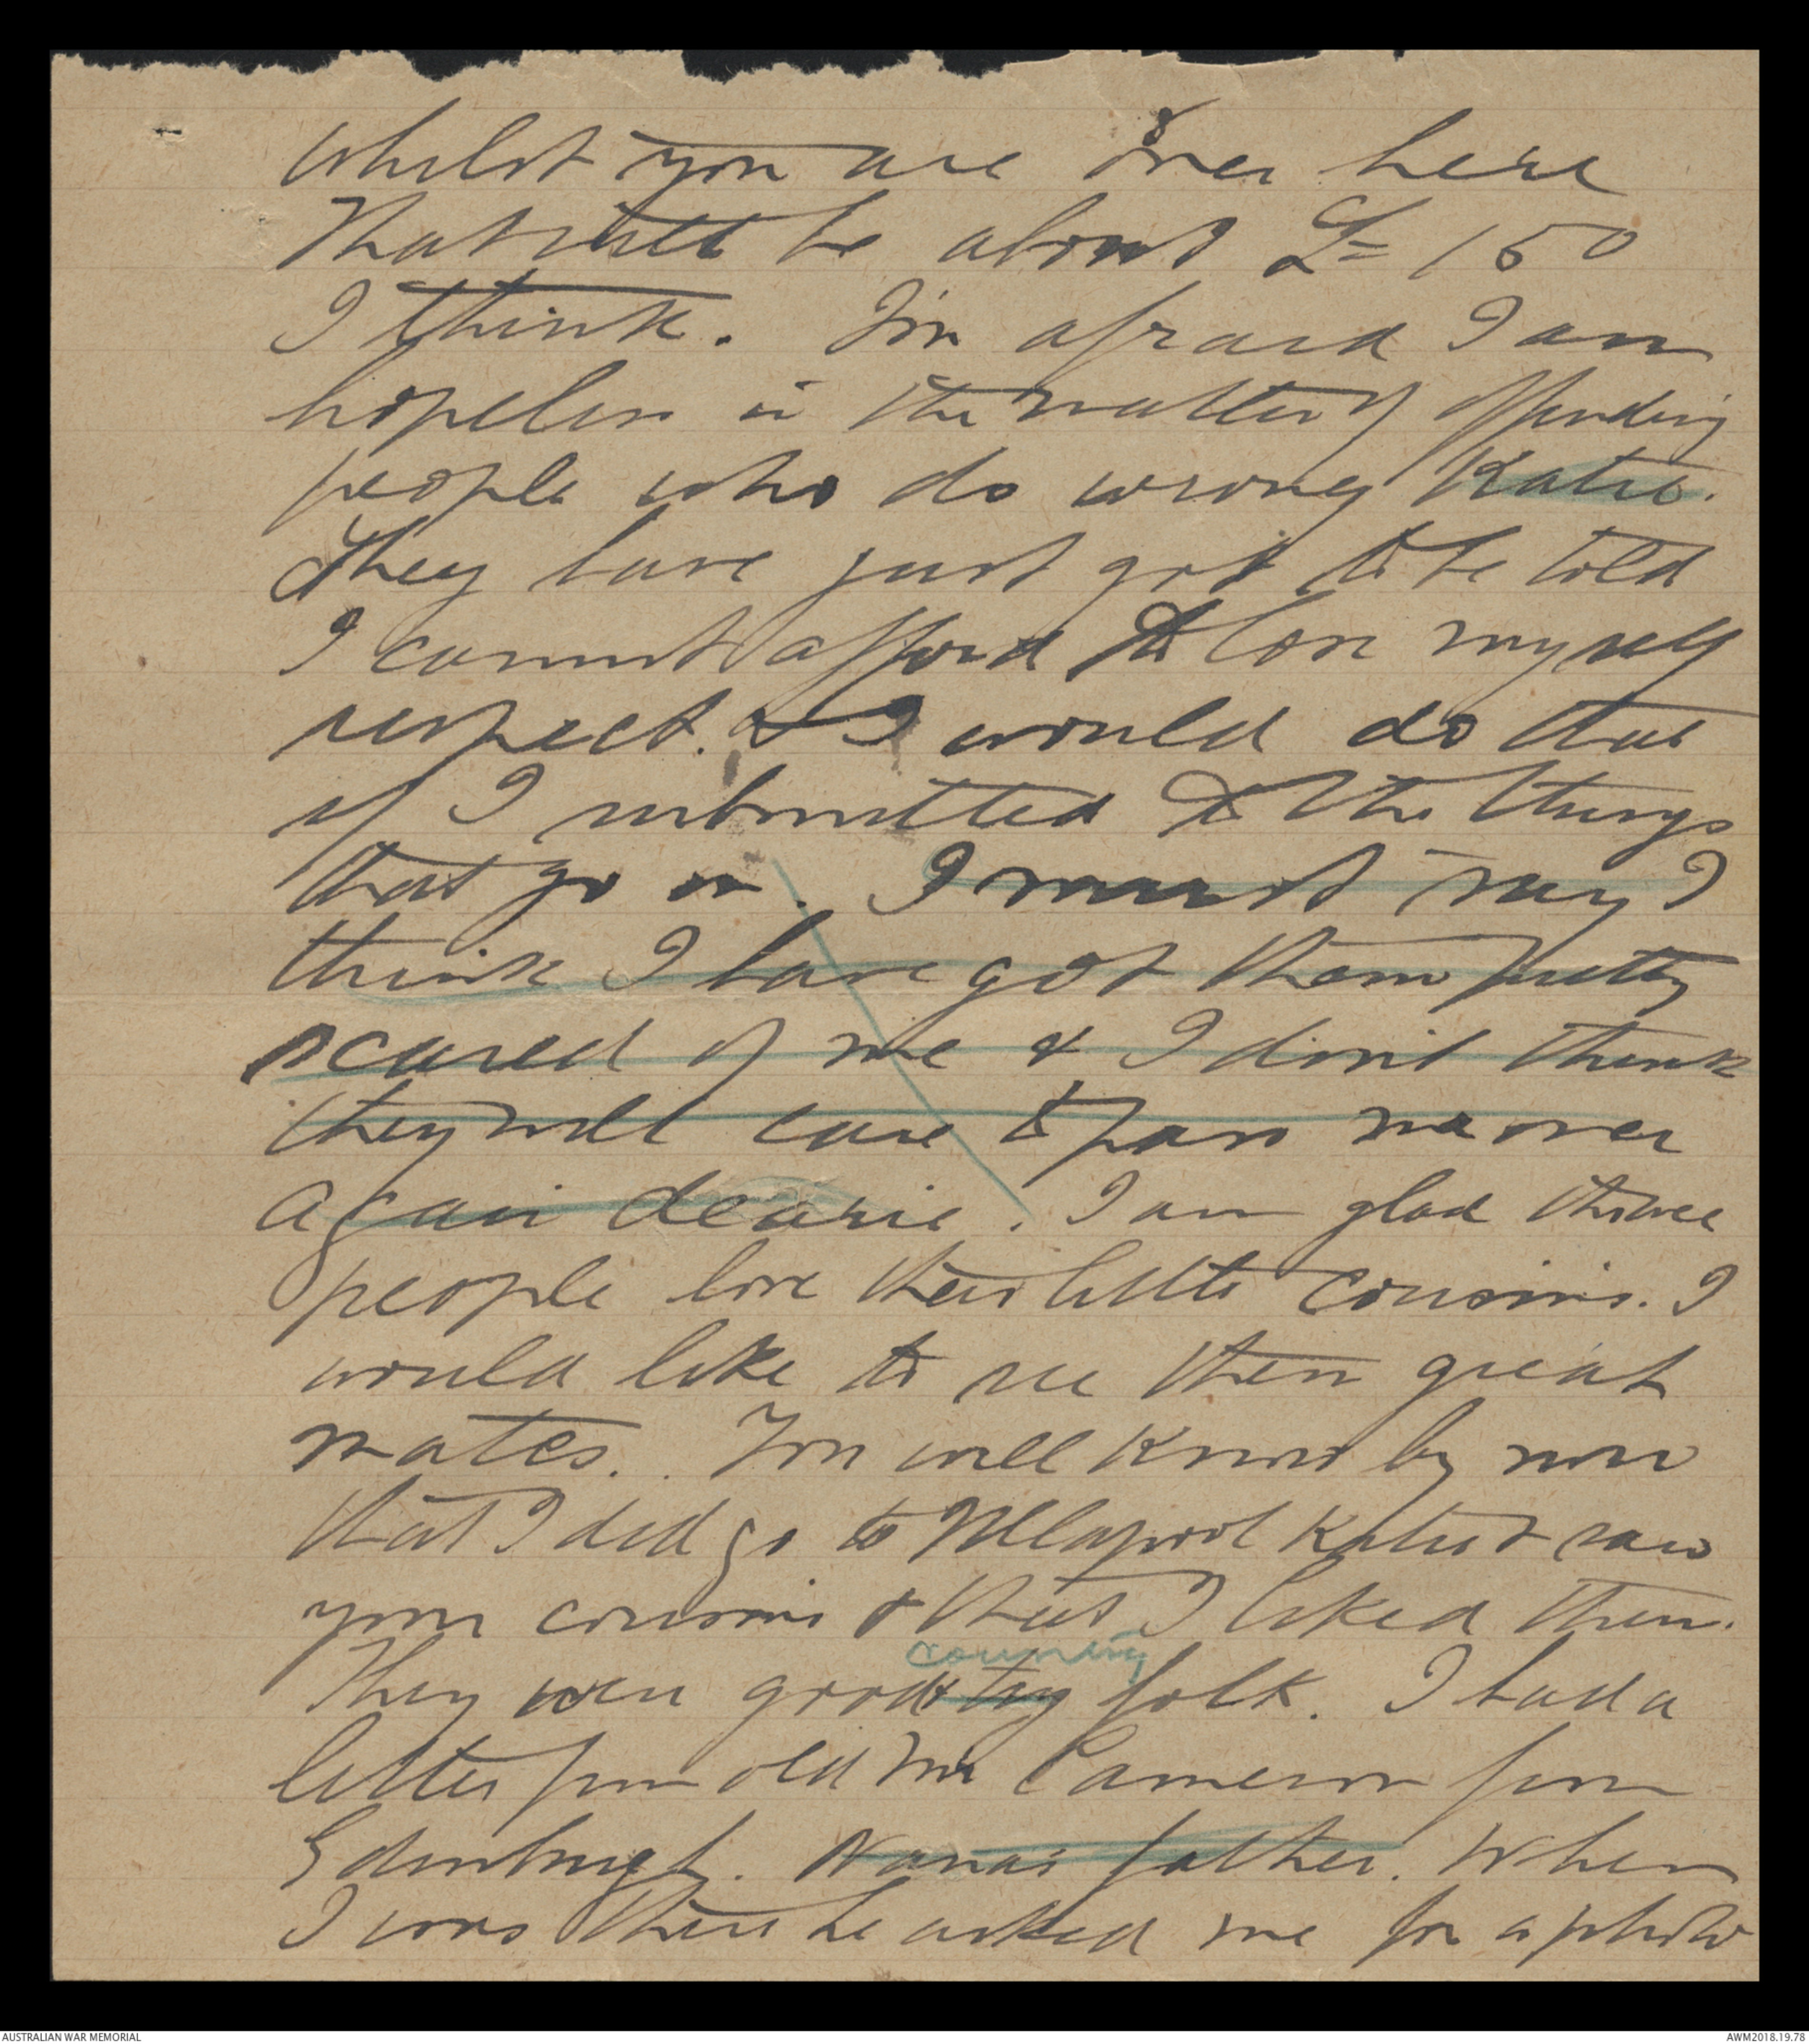 whilst you are over here
That will be about £ 150
I think. I'm afraid I am
hopeless in the matter of offending
people who do wrong Katie.
They have just got to be told
I cannot afford to lose my self
respect. & I would do that
if I submitted to the things
that go on. I must say I
think I have got them pretty
scared of me & I don't think
they will care to pass me over
again dearie. I am glad those
people love their little cousins. I
would like to see them great
mates. You will know by now
that I did go to Ullapool Katie & saw
your cousins & that I liked them.
country
They were good folk. I had a
letter from old Mr Cameron from
Edinburgh. Nana's father. When
I was there he asked me for a photo
AUSTRALIAN WAR MEMORIAL
AWM2018.19.78